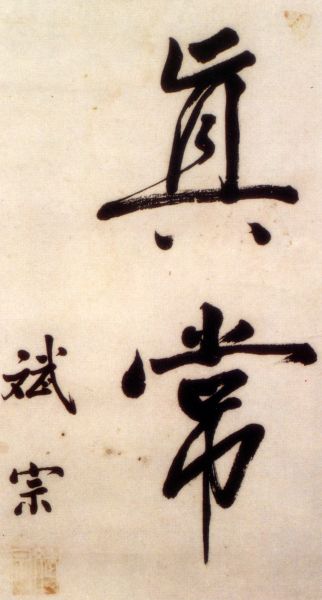 眞常
斌宗